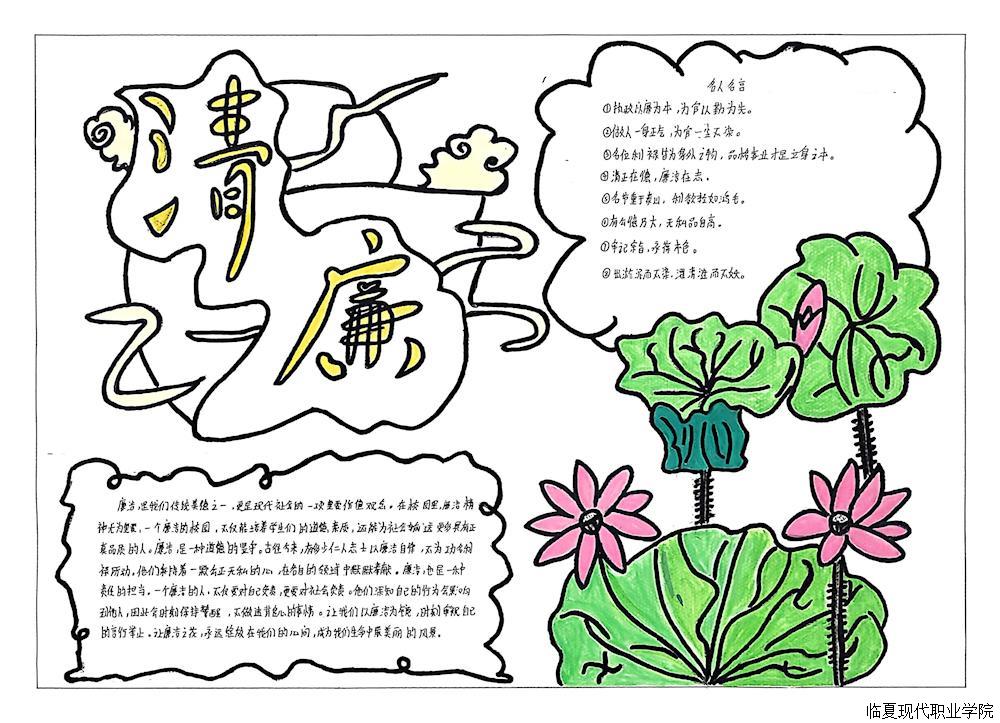 清
廉
名人名言
①执政以廉为本，为官以勤为先。
②做人一身正气，为官一尘不染。
③名位利禄皆为身外之物，品格事业才是立身之本。
④清正在德，廉洁在志。
⑤名节重于泰山，利欲轻如鸿毛。
⑥有公德乃大，无私品自高。
⑦牢记宗旨，永葆本色。
⑧出淤泥而不染，濯清涟而不妖。
廉洁，是我们传统美德之一，更是现代社会的一项重要价值观念。在校园里，廉洁精
神尤为重要，一个廉洁的校园，不仅能培养学生们的道德素质，还能为社会输送更多具有正
直品质的人。廉洁，是一种道德的坚守。古往今来，有多少仁人志士以廉洁自律，不为功名利
禄所动。他们秉持着一颗公正无私的心，在各自的领域中默默奉献。廉洁，也是一种
责任的担当。一个廉洁的人，不仅要对自己负责，更要对社会负责。他们深知自己的行为会影响
到他人，因此会时刻保持警醒，不做违背良心的事情。让我们以廉洁为镜，时刻审视自己
的言行举止。让廉洁之花，永远绽放在我们的心间，成为我们生命中最美丽的风景。
临夏现代职业学院